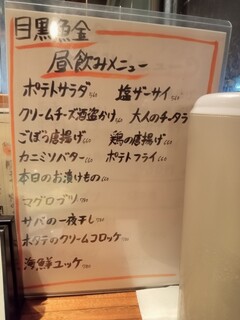 目黒魚金
昼飲みメニュー
ポテトサラダ 塩ザーサイ
クリームチーズ酒盗かけ 大人のチータラ
ごぼう唐揚げ 鶏の唐揚げ
カニミソバター ポテトフライ
本日のお漬けもの
マグロブツ
サバの一夜干し
ホタテのクリームコロッケ
海鮮ユッケ